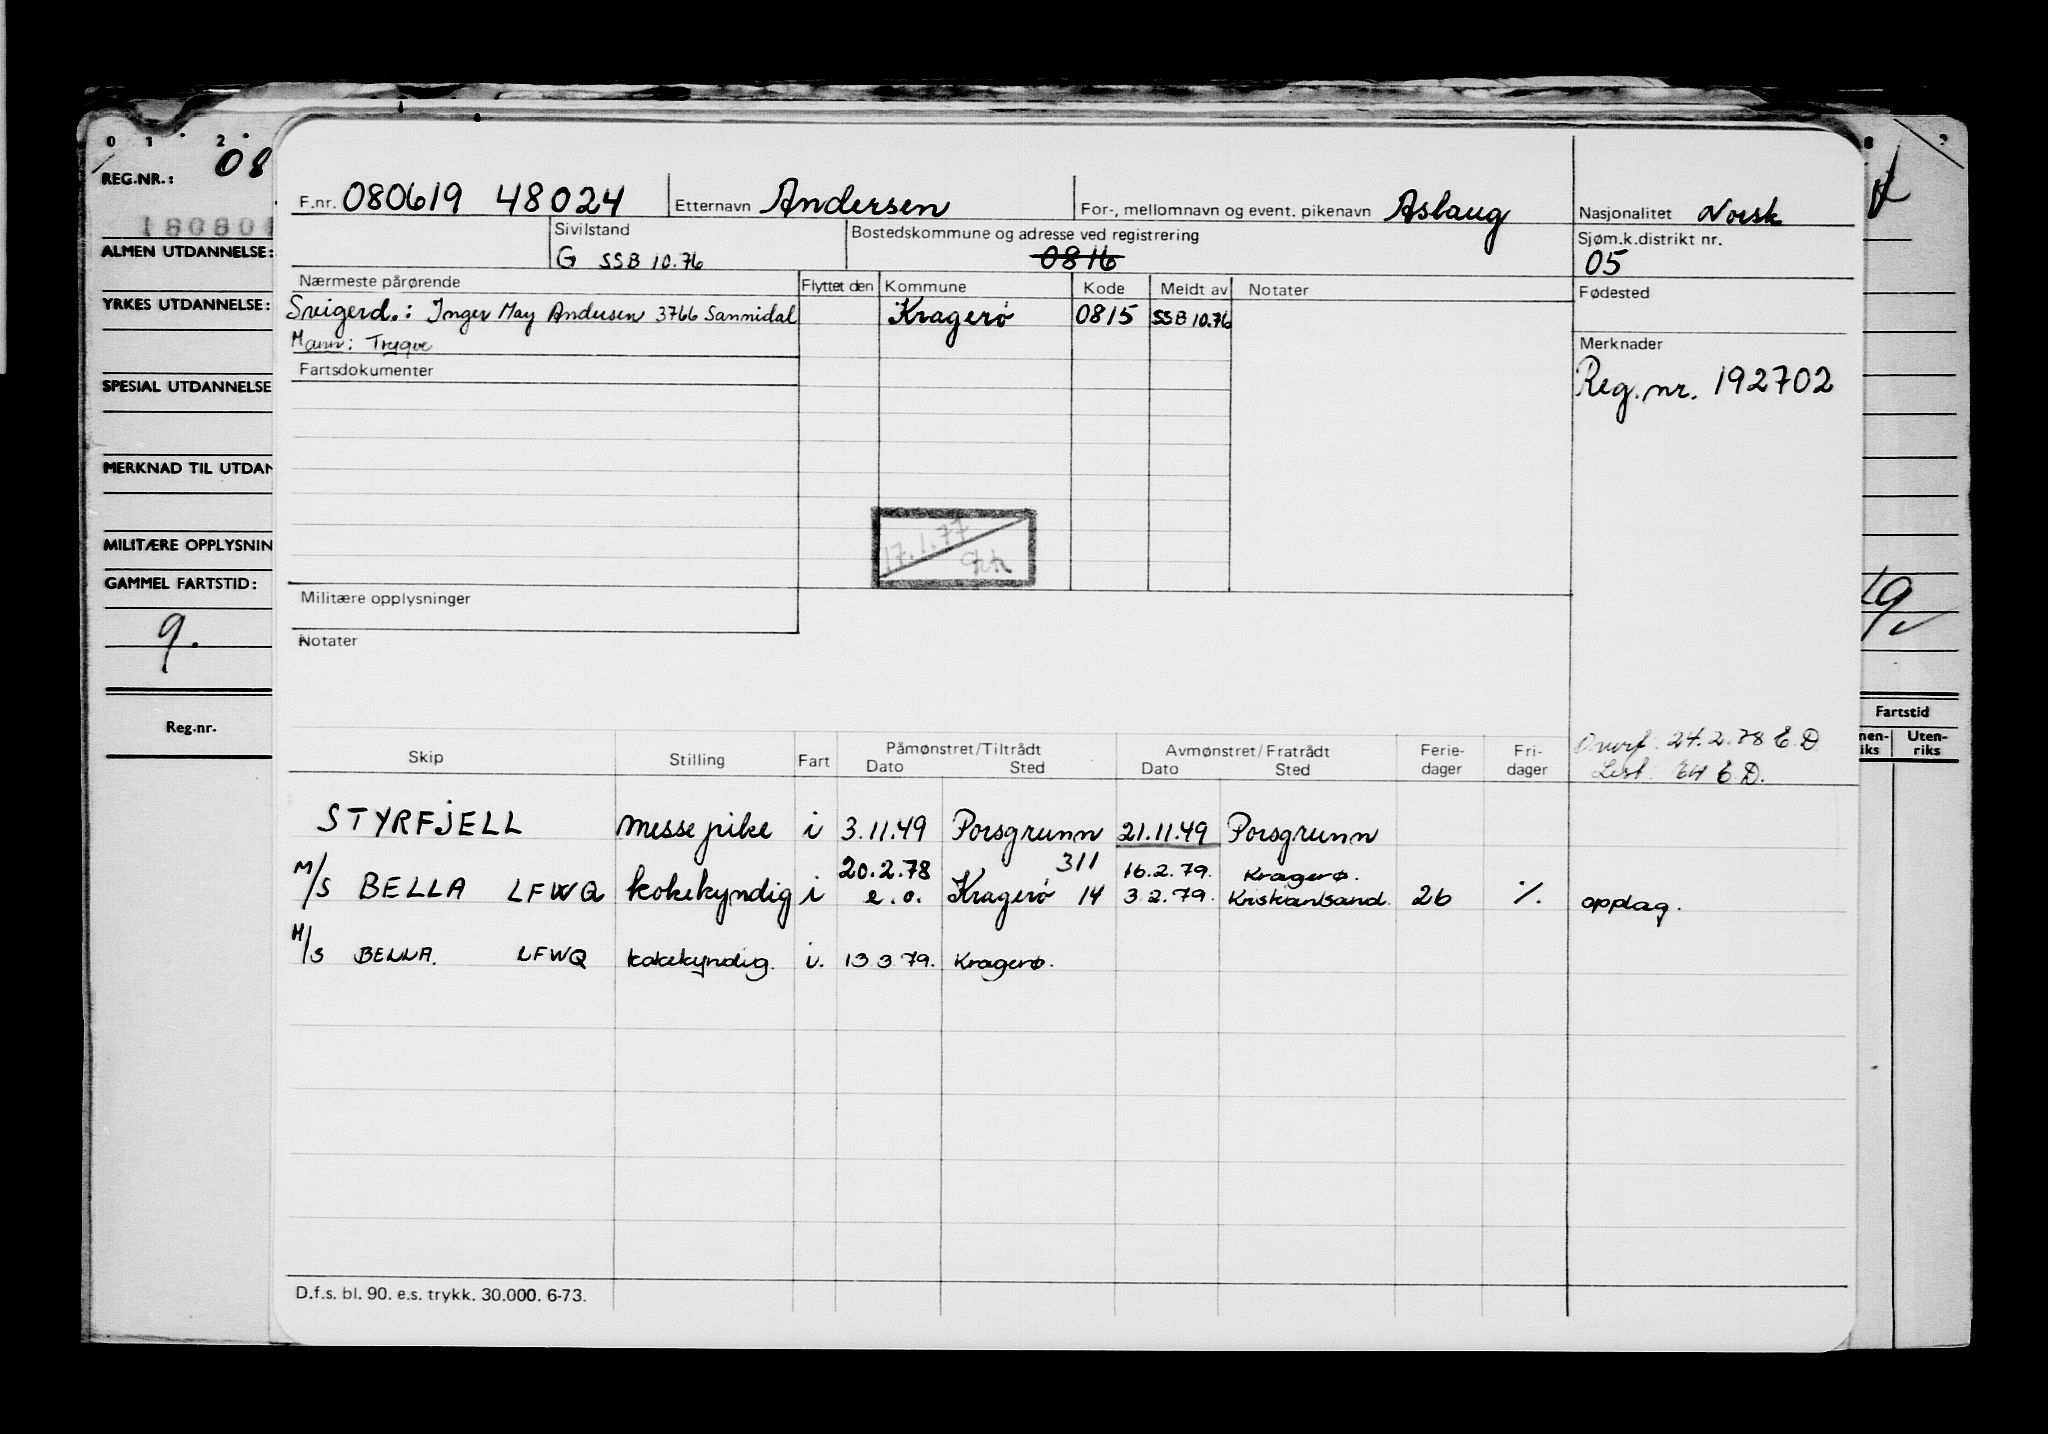 0 1 2
REG.NR.: 08
180808
ALMEN UTDANNELSE:
YRKES UTDANNELSE:
SPESIAL UTDANNELSE
MERKNAD TIL UTDAN
MILITÆRE OPPLYSNIN
GAMMEL FARTSTID:
9.
Reg.nr.
F.nr. 080619 48024 Etternavn Andersen For-, mellomnavn og event. pikenavn Aslaug Nasjonalitet Norsk
Sivilstand G SSB 10.76 Bostedskommune og adresse ved registrering 0816 Sjøm.k.distrikt nr. 05
Nærmeste pårørende Flyttet den Kommune Kode Meldt av Notater Fødested
Svigerd.: Inger May Andersen 3766 Sannidal Kragerø 0815 SSB 10.76
Mann: Trygve Merknader
Fartsdokumenter Reg.nr. 192702
17.1.77
Militære opplysninger
Notater
Skip Stilling Fart Påmønstret/Tiltrådt Dato Sted Avmønstret/Fratrådt Dato Sted Ferie-dager Fri-dager
24.2.78 E.D
E.D.
STYRFJELL messepike i 3.11.49 Porsgrunn 21.11.49 Porsgrunn
20.2.78 311 16.2.79. Kragerø.
M/S BELLA LFWQ kokekyndig i e.o. Kragerø 14 3.2.79. Kristiansand. 26 ./. opplag.
M/S BELLA. LFWQ kokekyndig. i. 13 3 79. Kragerø.
D.f.s. bl. 90. e.s. trykk. 30.000. 6-73.
8
19
Fartstid
nen-riks Uten-riks